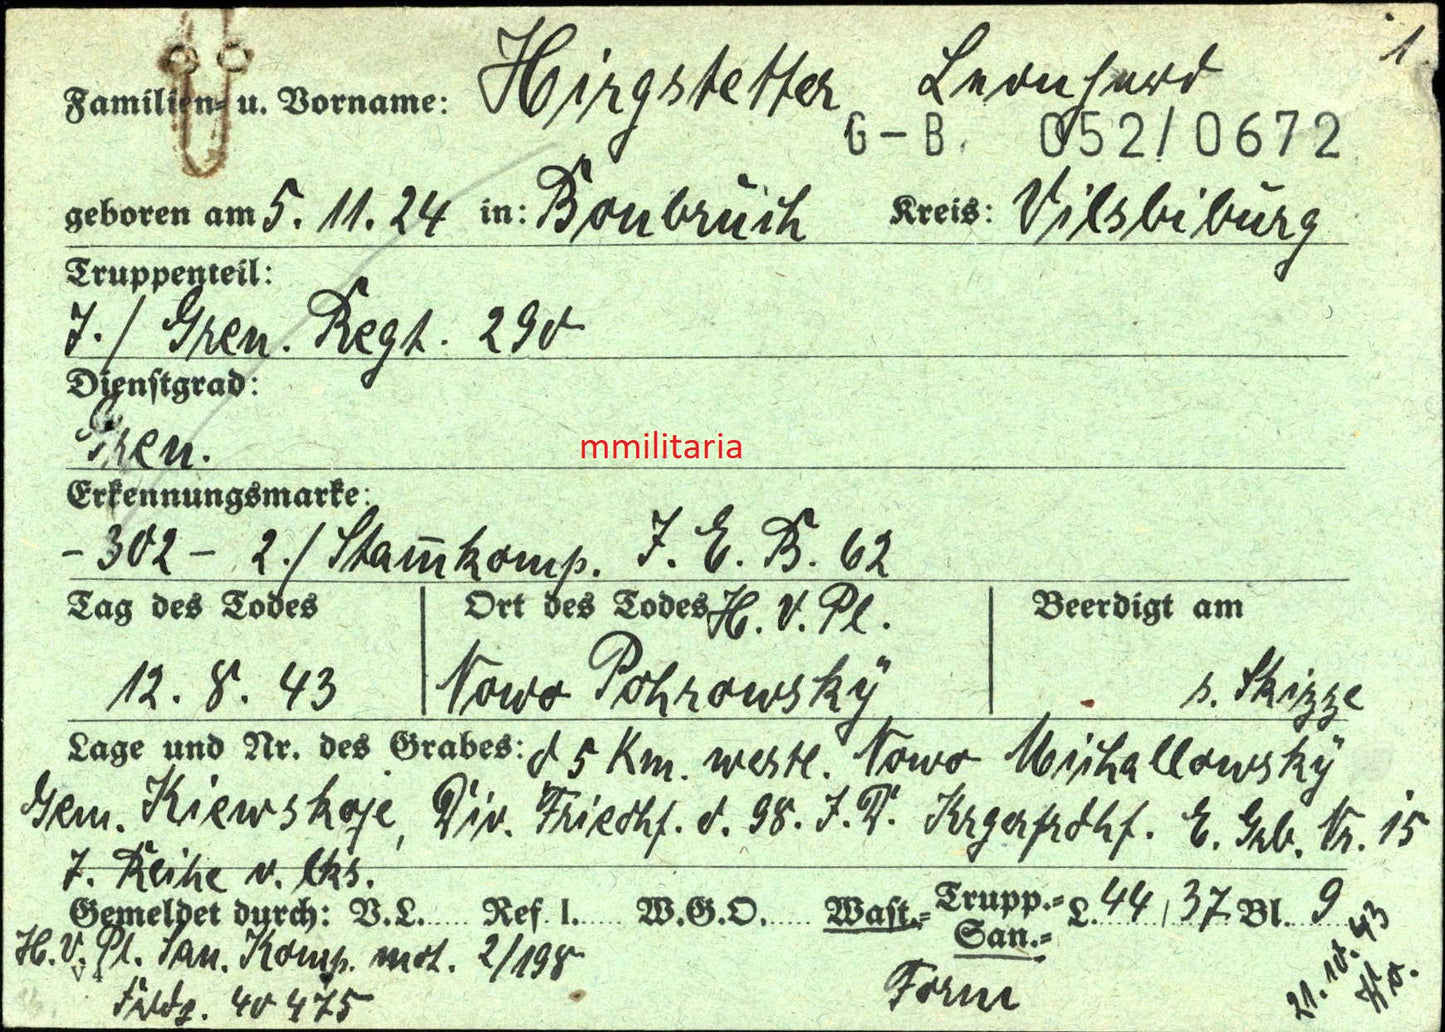 1
Familien- u. Vorname: Hirgstetter Leonhard
G-B. 052/0672
geboren am 5. 11. 24 in: Bonbruch Kreis: Vilsbiburg
Truppenteil:
7./ Gren. Regt. 290
Dienstgrad:
Gren.
mmilitaria
Erkennungsmarke:
- 302 - 2./ Stam̄komp. J. E. B. 62
Tag des Todes Ort des Todes H. V. Pl. Beerdigt am
12. 8. 43 Nowo Pokrowsky s. Skizze
Lage und Nr. des Grabes: 5 Km. westl. Nowo Michallowsky
Gem. Kiewskoje, Div. Friedhf. d. 98. J. D. Krgerfrdhf. E. Grb. Nr. 15
7. Reihe v. lks.
Gemeldet durch: V.L. Ref. I. W.G.O. Wast.= Trupp.= L. 44, 37 Bl. 9
San.=
H. V. Pl. San. Komp. mot. 2/198 Form
40 475
21. 10. 43